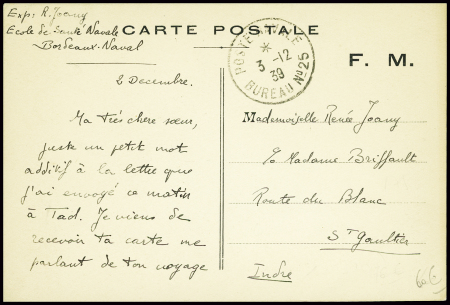 Exp: R. Joany
Ecole de Santé Navale
Bordeaux-Naval
CARTE POSTALE
F. M.
POSTE NAVALE
*
3 -12
39
BUREAU N°25
2 Decembre.
Ma très chere sœur,
juste un petit mot
additif à la lettre que
j'ai envoyé ce matin
à Tad. Je viens de
recevoir ta carte me
parlant de ton voyage
Mademoiselle Renée Joany
c/o Madame Briffault
Route du Blanc
St Gaultier
Indre